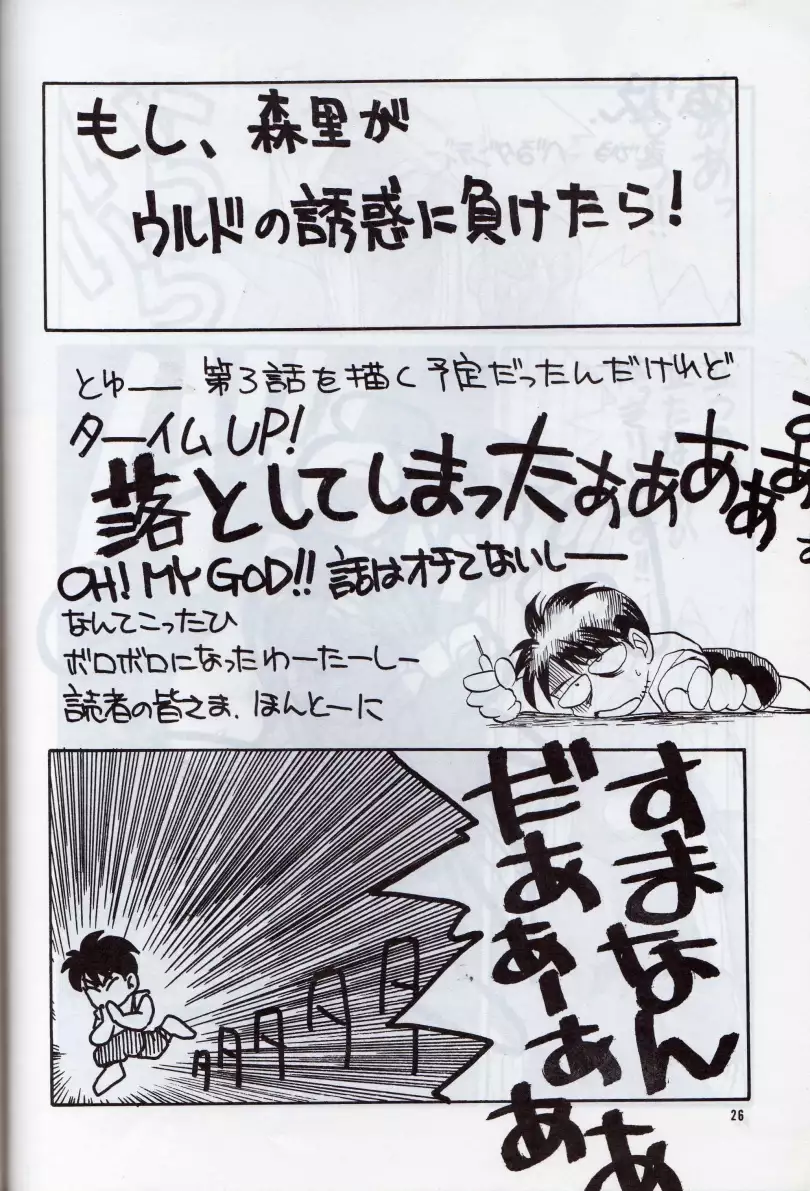 もし、森里が
ウルドの誘惑に負けたら!
とゆー 第3話を描く予定だったんだけれど
タームUP!
落としてしまったぁぁあぁ
OH! MY GOD!! 話はオチてないしー
なんてこったひ
ボロボロになったわーたーしー
読者の皆さま、ほんとーに
すまなん
だあぁーぁぁあぁ
タタタタタタ
26